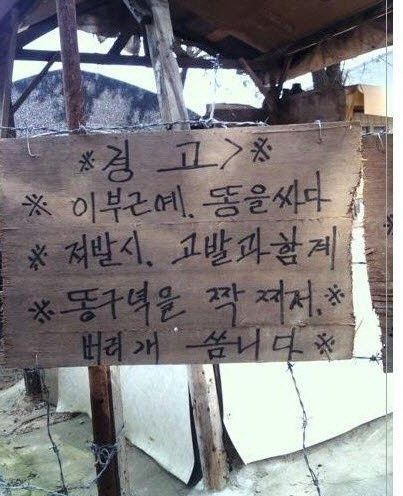 ※경 고>※
※ 이부근예. 똥을싸다
※ 저발시. 고발과함계
※똥구녁을 짝 찌저.※
버리개 씀니다※